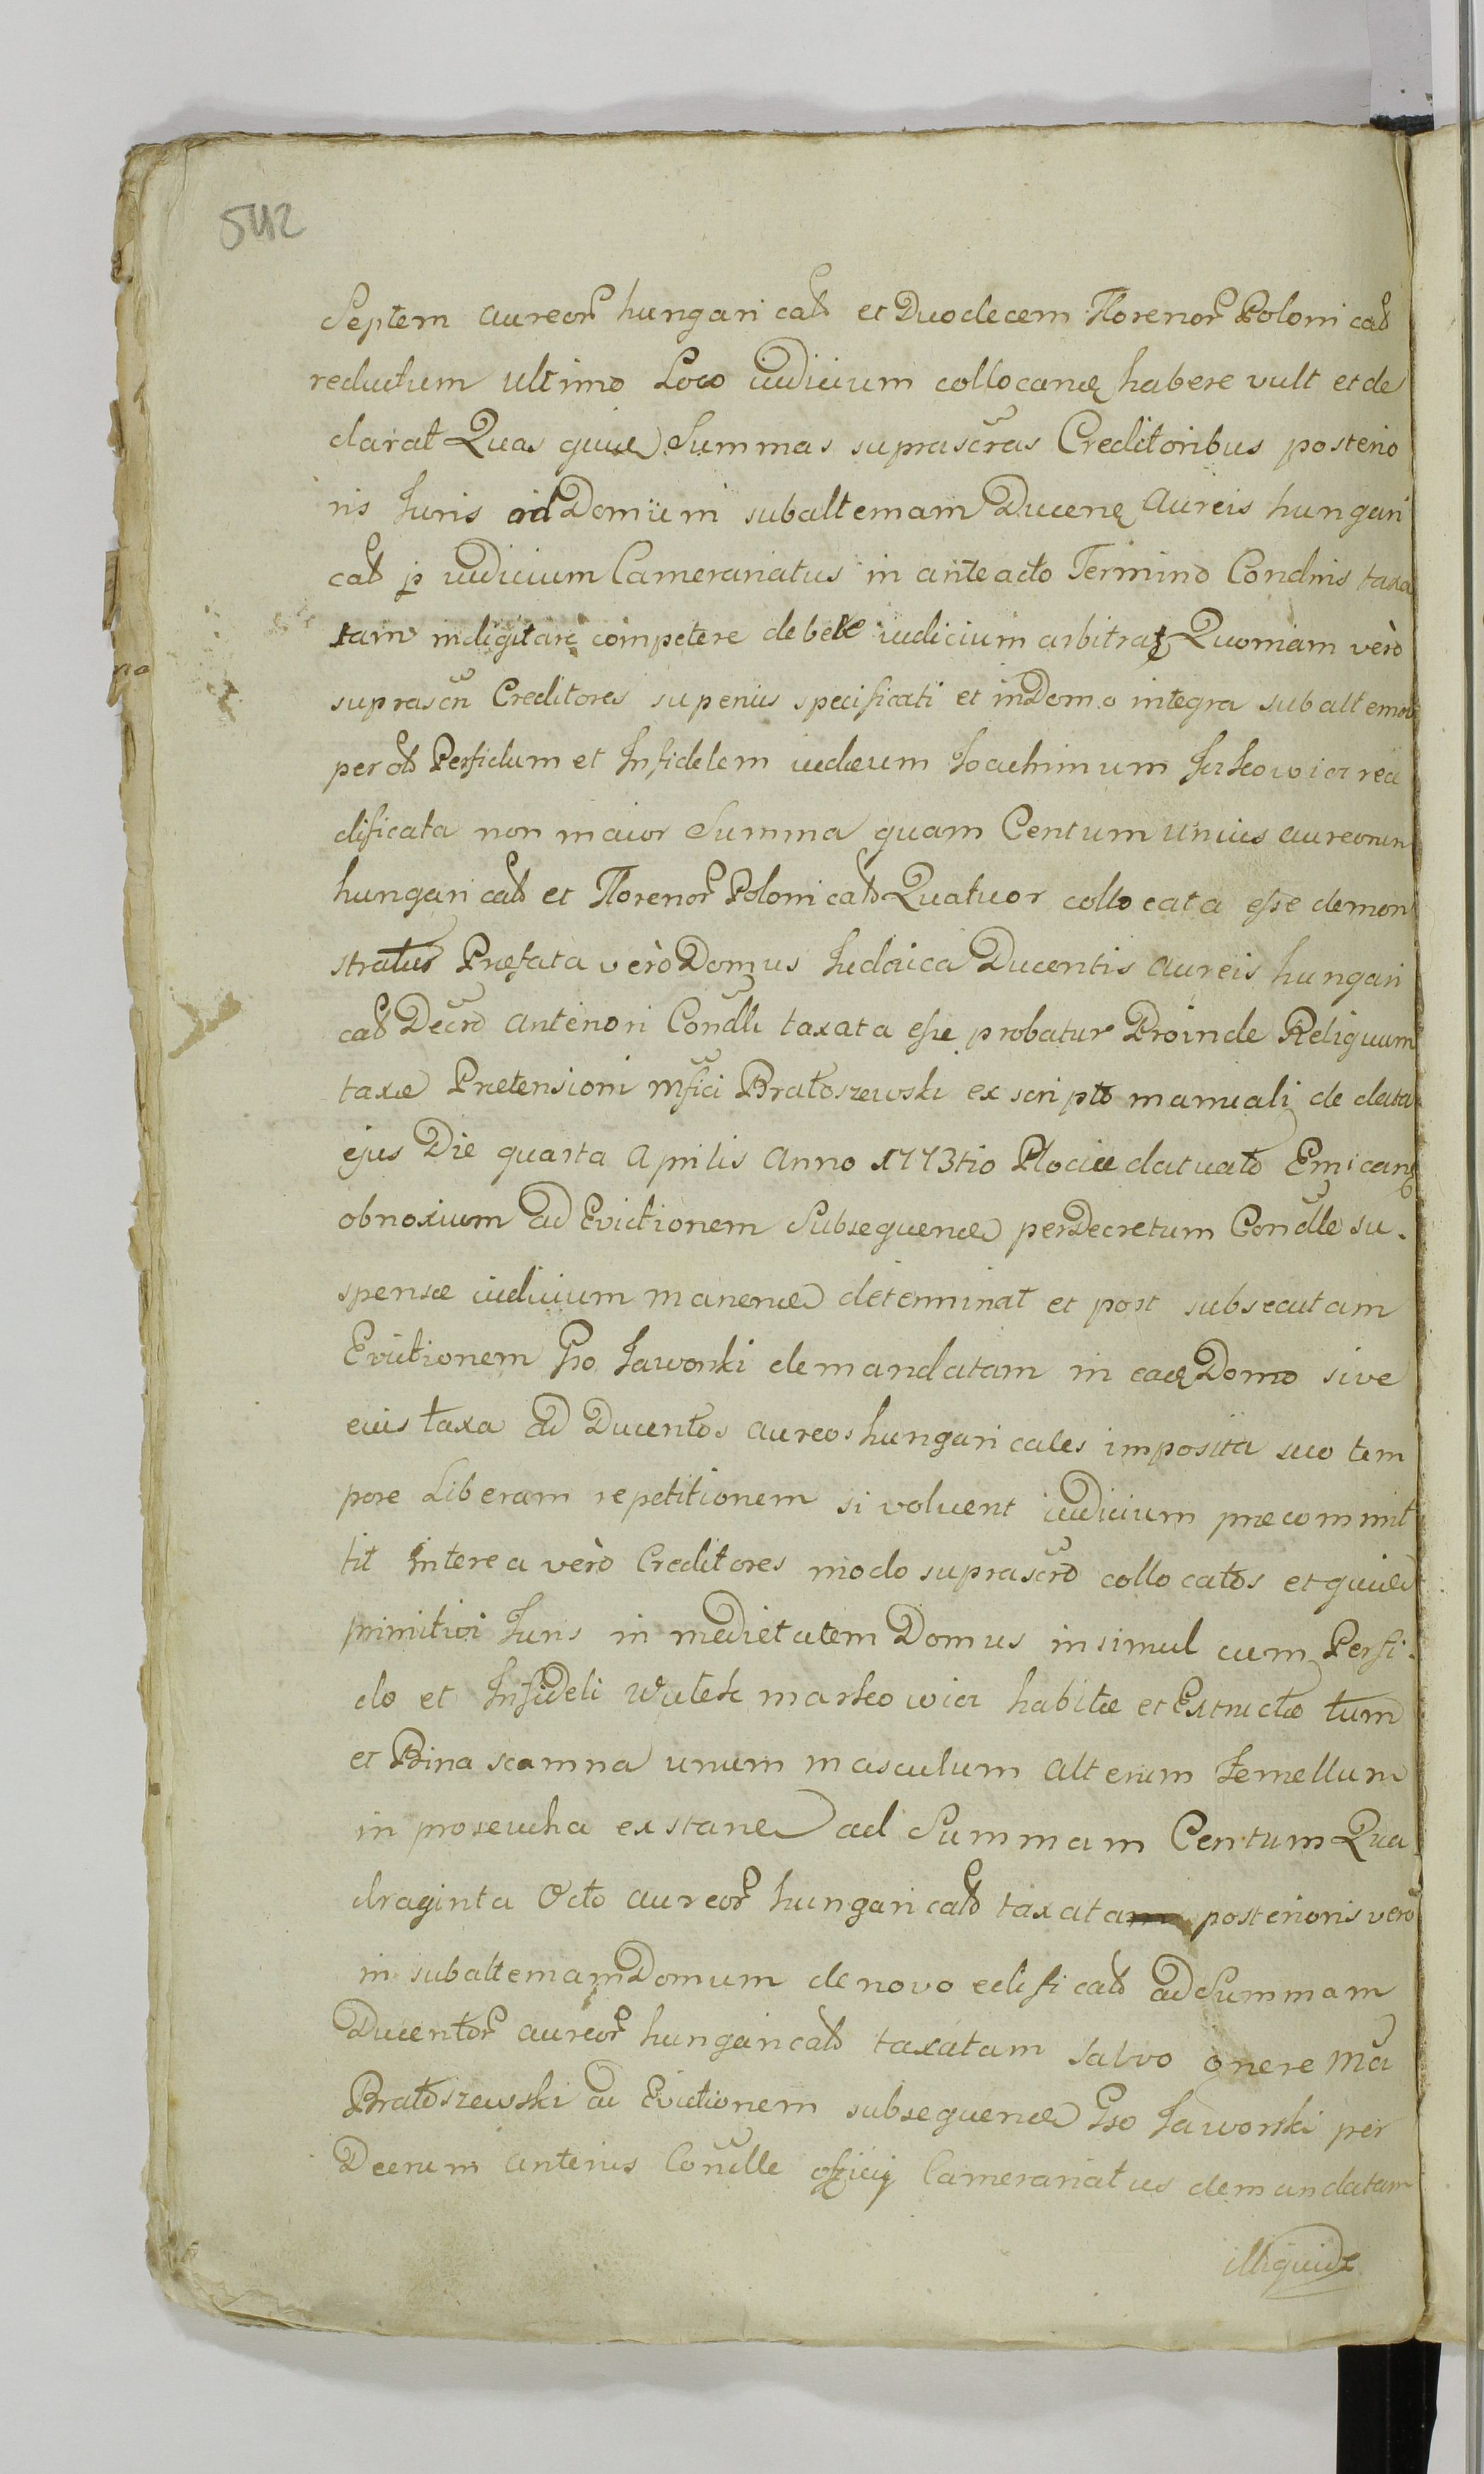 542
Septem aureor hungarical et Duodecem Florenor Polonical
reductum ultimo Loco iudicium collocanq habere vult et de
clarat Quas quive Summas suprascras Creditoribus posterio
ris Juris ad Domum subalternam Ducenq aureis hungari
cal p iudicium Camerariatus in anteacto Termino Condnis taxa
tam indigitare competere debere iudicium arbitratz Quoniam verò
suprascri Creditores superius specificati et in Domo integra subalterna
per Perfidum et Infidelem iudæum Joachimum Jckowicz reæ
dificata non maior Summa quam Centum unius aureorum
hungarical et Florenor Polonical Quatuor collocata esse demon
stratur Præfata verò Domus Judaica Ducentis aureis hungari
cal Decro anteriori Condli taxata esse probatur Proinde Reliquum
taxæ Pretensioni Mfici Bratoszewski ex scripto manuali de data
ejus Die quarta Aprilis Anno 1773tio Plociæ datuato Emicanq
obnoxium ad Evictionem Subsequend per Decretum Condle su
spensæ iudicium manend determinat et post subsecutam
Evictionem Gso Jaworski demandatam in eadq Domo sive
eius taxa ad Ducentos aureos hungaricales imposita suo tem
pore Liberam repetitionem si voluent iudicium præcommit
tit Interea verò Creditores modo suprascro collocatos et quive
primitivi Juris in medietatem Domus insimul cum Perfi
do et Infideli Wulek markowicz habitæ et Extructæ tum
et Bina scamna unum masculum alterum femellum
in proseucha exstane ad Summam Centum Qua
draginta Octo aureor hungarical taxata posterioris verò
in subalternam Domum de novo edifical ad Summam
Ducentor aureor hungarical taxatam salvo onere Mci
Bratoszewski ad Evictionem subsequend Gso Jaworski per
Decrum anterius Condlle officij Camerariatus demandatam
illiquid